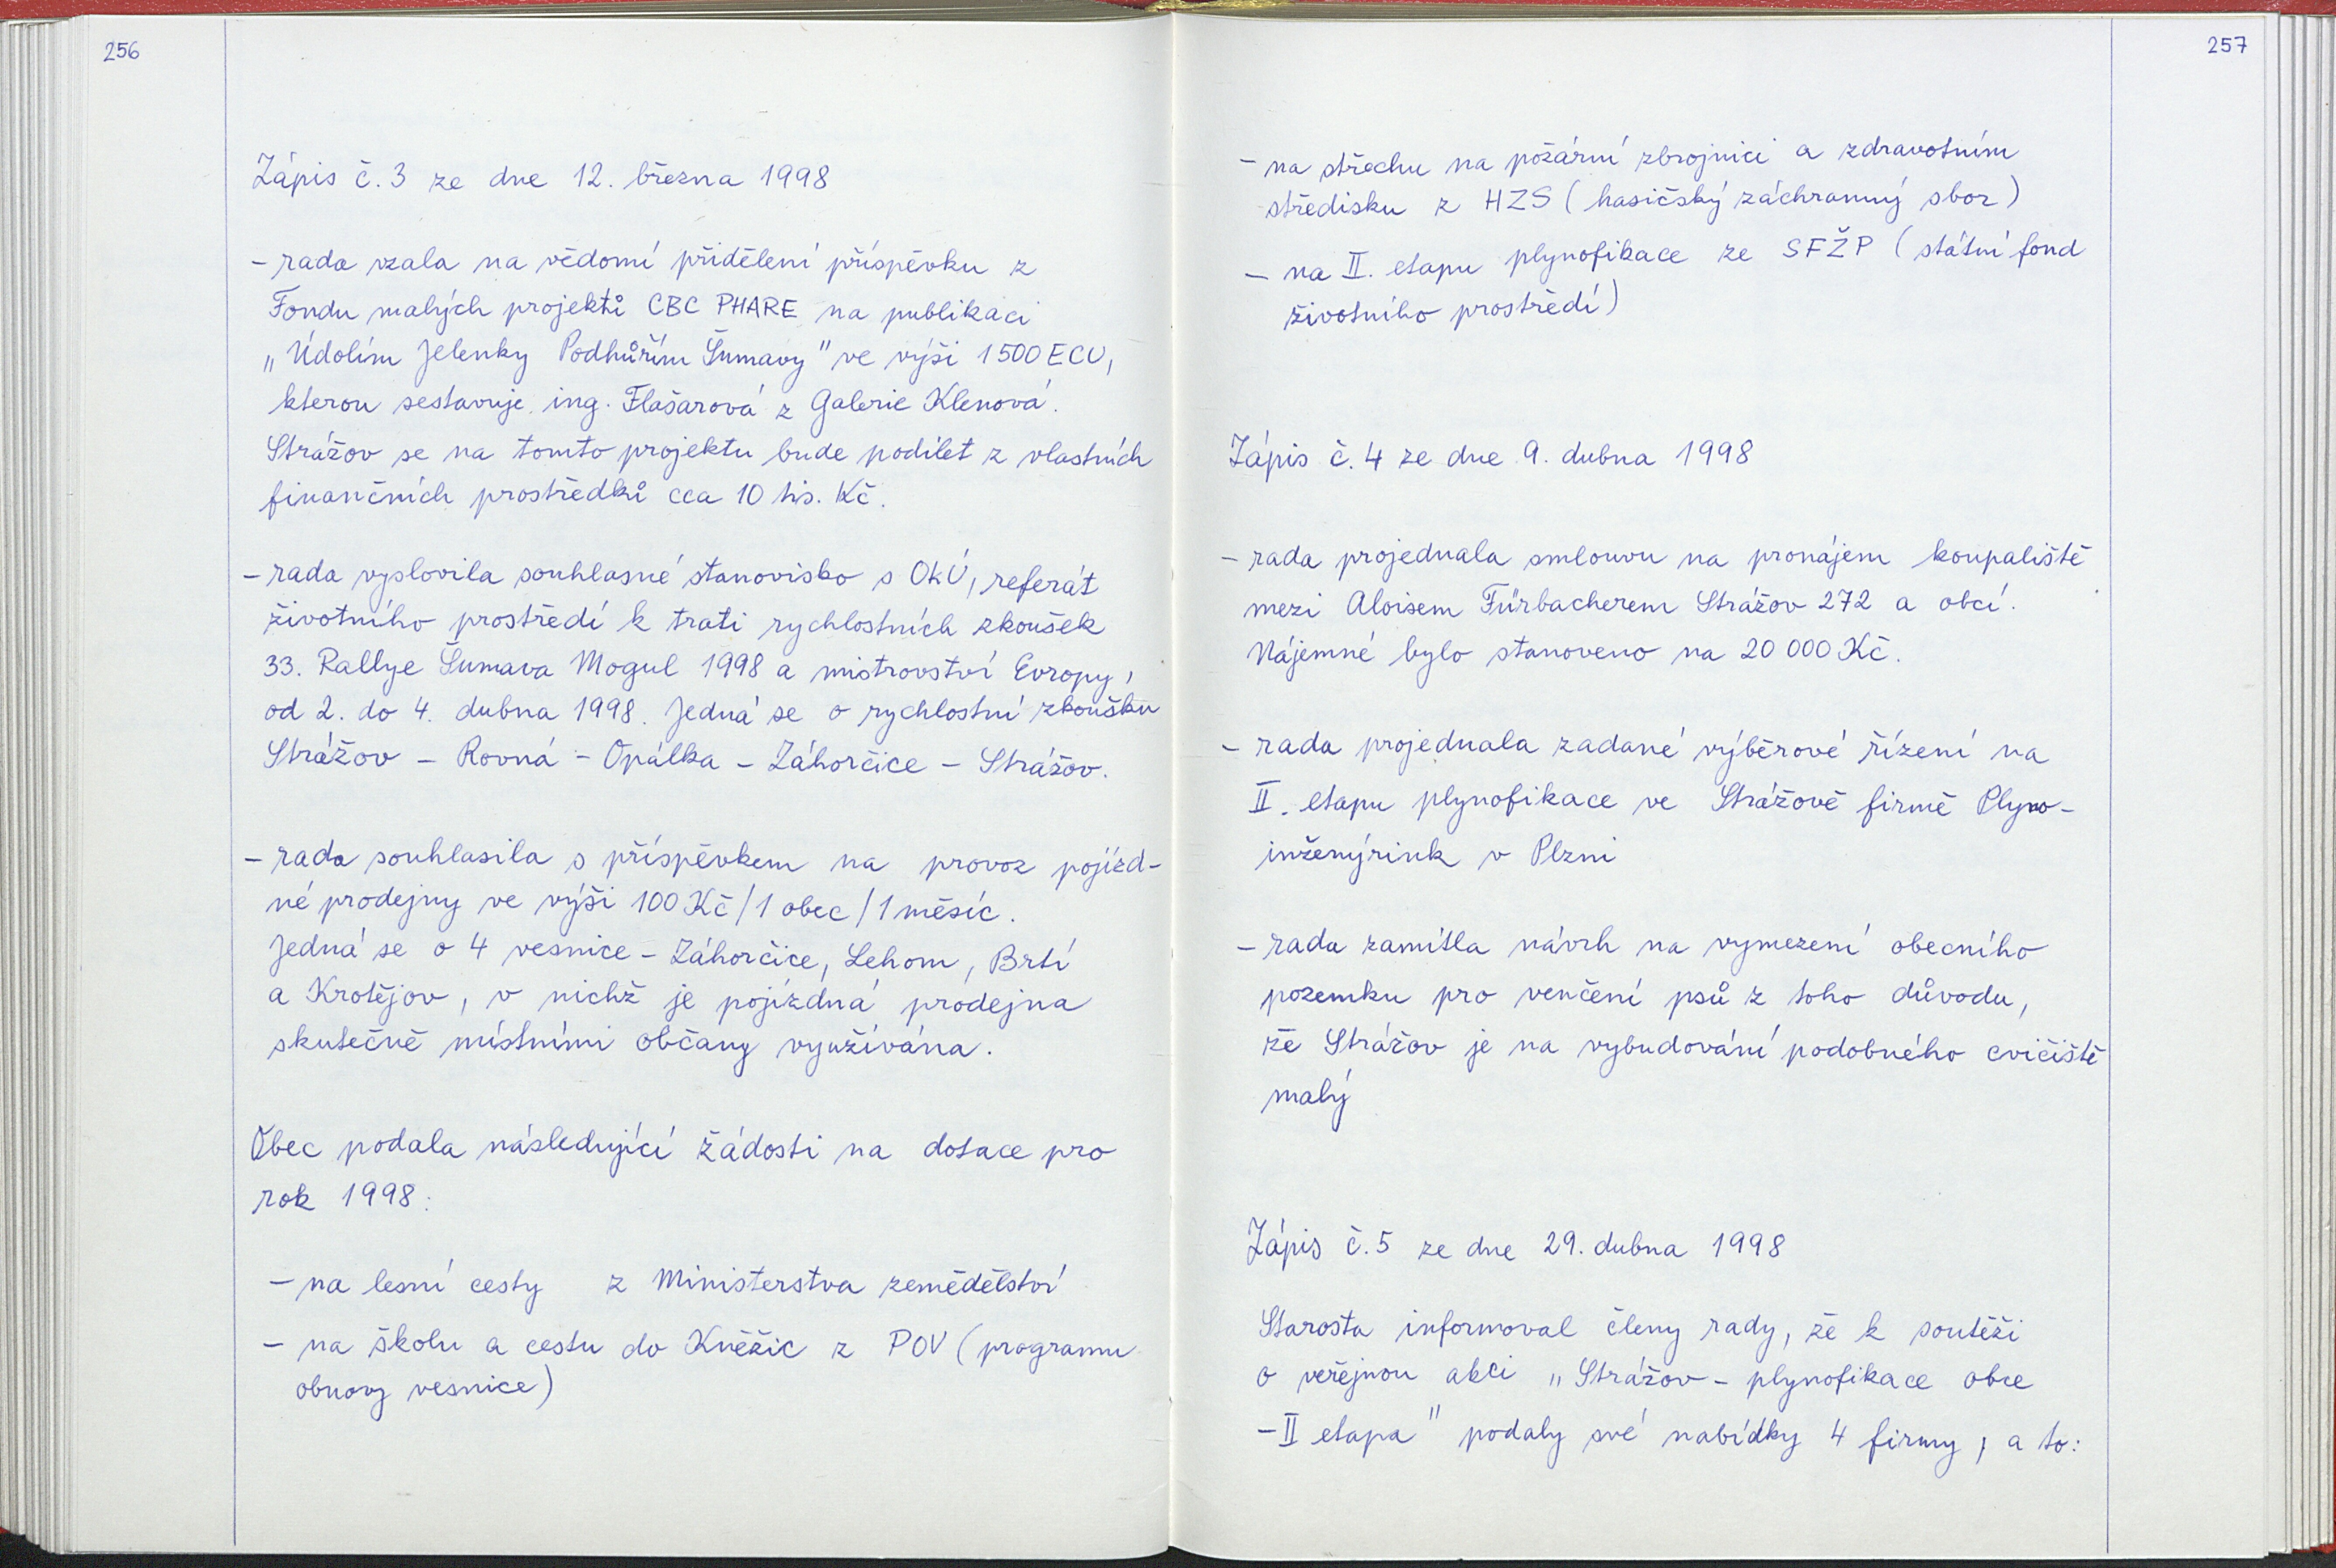 256
Zápis č. 3 ze dne 12. března 1998
- rada vzala na vědomí přidělení příspěvku z
Fondu malých projektů CBC PHARE na publikaci
„Údolím Jelenky Podhůřím Šumavy" ve výši 1500 ECU,
kterou sestavuje ing. Flašarová z Galerie Klenová.
Strážov se na tomto projektu bude podílet z vlastních
finančních prostředků cca 10 tis. Kč.
- rada vyslovila souhlasné stanovisko s OkÚ, referát
životního prostředí k trati rychlostních zkoušek
33. Rallye Šumava Mogul 1998 a mistrovství Evropy,
od 2. do 4. dubna 1998. Jedná se o rychlostní zkoušku
Strážov - Rovná - Opálka - Záhorčice - Strážov.
- rada souhlasila s příspěvkem na provoz pojízd-
né prodejny ve výši 100 Kč/1 obec/1 měsíc.
Jedná se o 4 vesnice - Záhorčice, Lehom, Brtí
a Krotějov, v nichž je pojízdná prodejna
skutečně místními občany využívána.
Obec podala následující žádosti na dotace pro
rok 1998:
- na lesní cesty z Ministerstva zemědělství
- na školu a cestu do Kněžic z POV (programu
obnovy vesnice)
257
- na střechu na požární zbrojnici a zdravotním
středisku z HZS (hasičský záchranný sbor)
- na II. etapu plynofikace ze SFŽP (státní fond
životního prostředí)
Zápis č. 4 ze dne 9. dubna 1998
- rada projednala smlouvu na pronájem koupaliště
mezi Aloisem Fürbacherem Strážov 272 a obcí.
Nájemné bylo stanoveno na 20 000 Kč.
- rada projednala zadané výběrové řízení na
II. etapu plynofikace ve Strážově firmě Plyno-
inženýrink v Plzni
- rada zamítla návrh na vymezení obecního
pozemku pro venčení psů z toho důvodu,
že Strážov je na vybudování podobného cvičiště
malý
Zápis č. 5 ze dne 29. dubna 1998
Starosta informoval členy rady, že k soutěži
o veřejnou akci „Strážov - plynofikace obce
- II etapa" podaly své nabídky 4 firmy, a to: